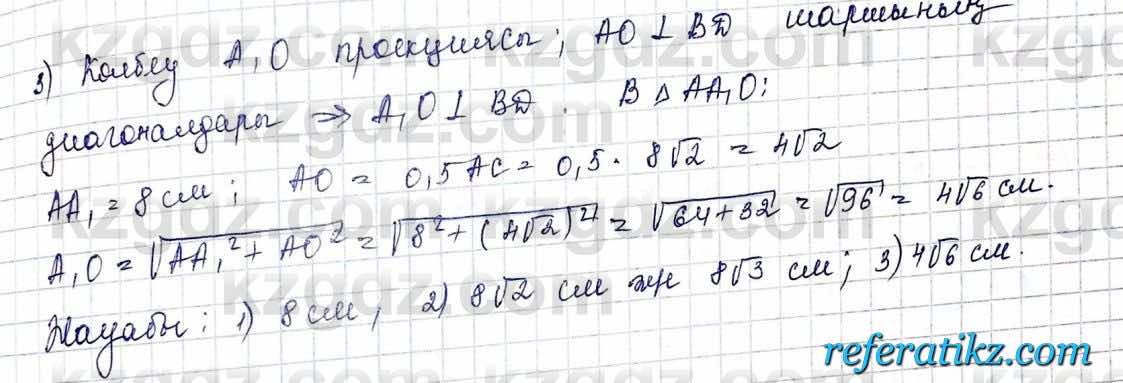 3) Көлбеу A₁O проекциясы; AO ⊥ BD шаршының
диагоналдары => A₁O ⊥ BD. В △ AA₁O:
AA₁ = 8 см; AO = 0,5 AC = 0,5 · 8√2 = 4√2
A₁O = √(AA₁² + AO²) = √(8² + (4√2)²) = √(64+32) = √96 = 4√6 см.
Жауабы: 1) 8 см; 2) 8√2 см және 8√3 см; 3) 4√6 см.
kzgdz.com
referatikz.com